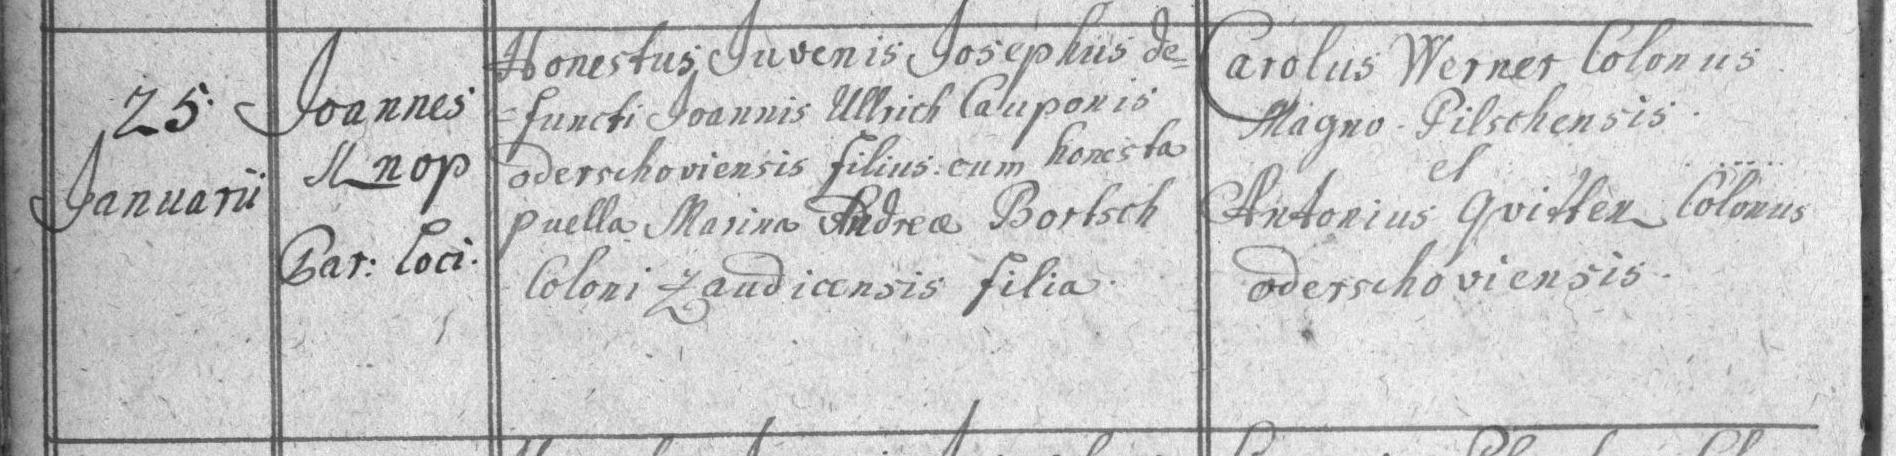 25.
Januarii
Joannes
Knop
Par: Loci.
Honestus Juvenis Josephus de=
=functi Joannis Ullrich Cauponis
oderschoviensis filius: cum honesta
puella Marina Andreæ Bortsch
Coloni Zaudicensis filia.
Carolus Werner Colonus
Magno-Pilschensis.
et
Antonius Qvitten Colonus
oderschoviensis.